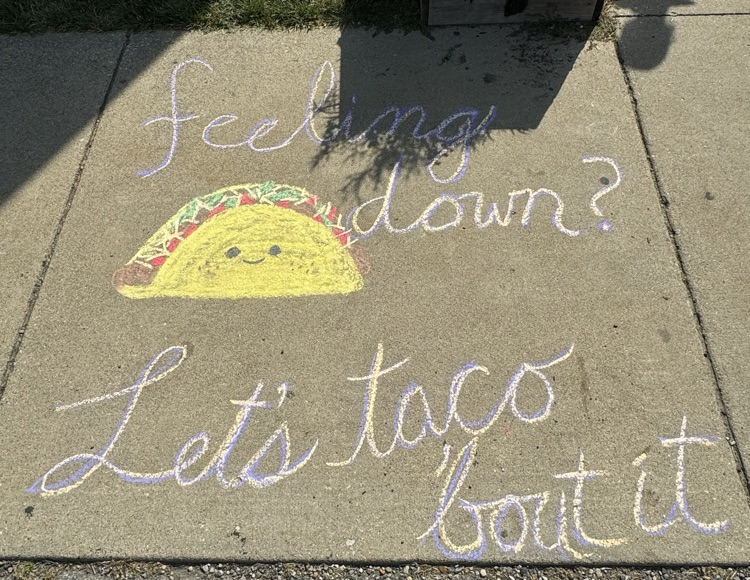 feeling
down?
Let's taco
'bout it